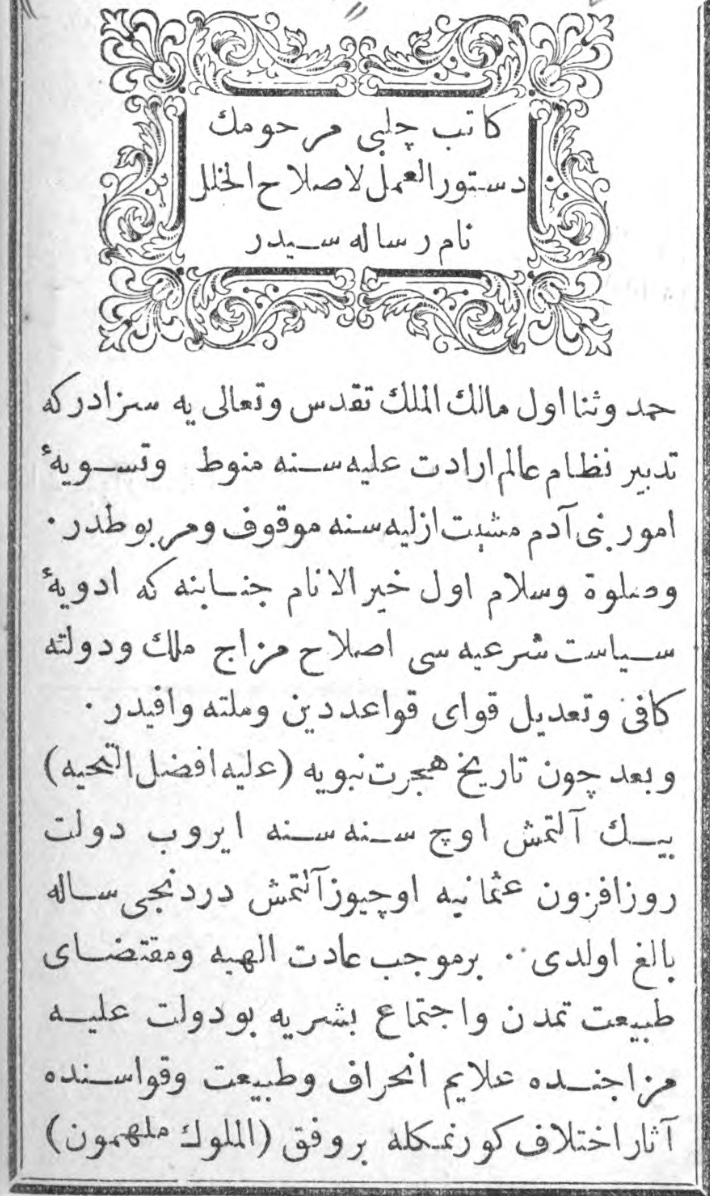 كاتب چلبی مرحومك
دستورالعمل لاصلاح الخلل
نام رساله سیدر
حمد وثنا اول مالك الملك تقدس وتعالی یه سزادركه
تدبیر نظام عالم ارادت علیه سنه منوط وتسویۀ
امور بنی آدم مشیت ازلیه سنه موقوف ومربوطدر ٠
وصلوة وسلام اول خیر الانام جنابنه كه ادویۀ
سیاست شرعیه سی اصلاح مزاج ملك ودولته
كافی وتعدیل قوای قواعد دین وملته وافیدر ٠
وبعد چون تاریخ هجرت نبویه (علیه افضل التحیه)
بیك آلتمش اوچ سنه سنه ایروب دولت
روزافزون عثمانیه اوچیوز آلتمش دردنجی ساله
بالغ اولدی ٠٠ برموجب عادت الهیه ومقتضای
طبیعت تمدن واجتماع بشریه بودولت علیه
مزاجنده علایم انحراف وطبیعت وقواسنده
آثار اختلاف كورنمكله بروفق (الملوك ملهمون)